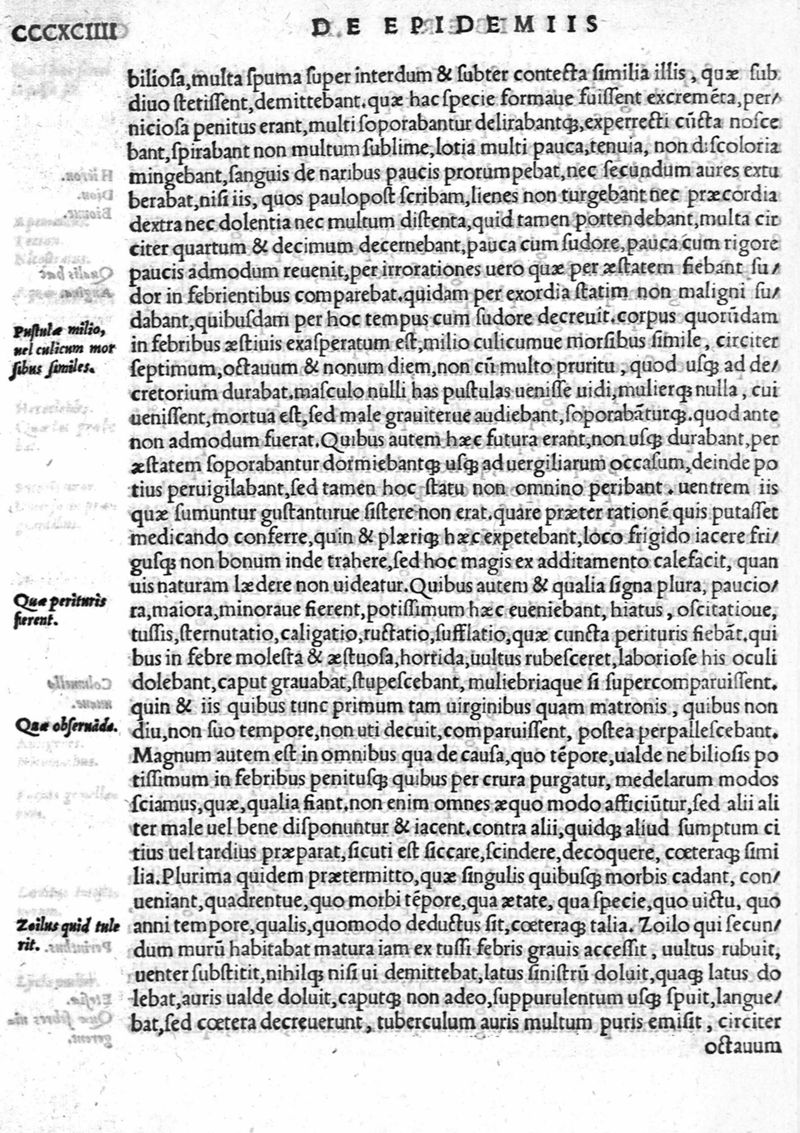 CCCXCIIII
DE EPIDEMIIS
bilioſa,multa ſpuma ſuper interdum & ſubter contecta ſimilia illis, quæ ſub
diuo ſtetiſſent,demittebant.quæ hac ſpecie formaue fuiſſent excremēta,per/
nicioſa penitus erant,multi ſoporabantur delirabantꝗ,experrecti cūcta noſce
bant,ſpirabant non multum ſublime,lotia multi pauca,tenuia, non diſcoloria
mingebant,ſanguis de naribus paucis prorumpebat,nec ſecundum aures extu
berabat,niſi iis, quos paulopoſt ſcribam,lienes non turgebant nec præcordia
dextra nec dolentia nec multum diſtenta,quid tamen portendebant,multa cir
citer quartum & decimum decernebant,pauca cum ſudore,pauca cum rigore
paucis admodum reuenit,per irrorationes uero quæ per æſtatem fiebant ſu/
dor in febrientibus comparebat.quidam per exordia ſtatim non maligni ſu/
dabant,quibuſdam per hoc tempus cum ſudore decreuit.corpus quorūdam
Puſtulæ milio,
uel culicum mor
ſibus ſimiles.
in febribus æſtiuis exaſperatum eſt,milio culicumue morſibus ſimile, circiter
ſeptimum,octauum & nonum diem,non cū multo pruritu, quod uſꝗ ad de/
cretorium durabat.maſculo nulli has puſtulas ueniſſe uidi,mulierꝗ nulla, cui
ueniſſent,mortua eſt,ſed male grauiterue audiebant,ſoporabāturꝗ.quod ante
non admodum fuerat.Quibus autem hæc futura erant,non uſꝗ durabant,per
æſtatem ſoporabantur dormiebantꝗ uſꝗ ad uergiliarum occaſum,deinde po
tius peruigilabant,ſed tamen hoc ſtatu non omnino peribant. uentrem iis
quæ ſumuntur guſtanturue ſiſtere non erat,quare præter rationē quis putaſſet
medicando conferre,quin & plæriꝗ hæc expetebant,loco frigido iacere fri/
guſꝗ non bonum inde trahere,ſed hoc magis ex additamento calefacit, quan
uis naturam lædere non uideatur.Quibus autem & qualia ſigna plura, paucio/
Quæ perituris
fierent.
ra,maiora,minoraue fierent,potiſſimum hæc eueniebant, hiatus, oſcitatioue,
tuſſis,ſternutatio,caligatio,ructatio,ſufflatio,quæ cuncta perituris fiebāt,qui
bus in febre moleſta & æſtuoſa,horrida,uultus rubeſceret,laborioſe his oculi
dolebant,caput grauabat,ſtupeſcebant, muliebriaque ſi ſupercomparuiſſent.
quin & iis quibus tunc primum tam uirginibus quam matronis, quibus non
Quæ obſeruāda.
diu,non ſuo tempore,non uti decuit,comparuiſſent, poſtea perpalleſcebant.
Magnum autem eſt in omnibus qua de cauſa,quo tēpore,ualde ne bilioſis po
tiſſimum in febribus penituſꝗ quibus per crura purgatur, medelarum modos
ſciamus,quæ,qualia fiant.non enim omnes æquo modo afficiūtur,ſed alii ali
ter male uel bene diſponuntur & iacent.contra alii,quidꝗ aliud ſumptum ci
tius uel tardius præparat,ſicuti eſt ſiccare,ſcindere,decoquere, cœteraꝗ ſimi
lia.Plurima quidem prætermitto,quæ ſingulis quibuſꝗ morbis cadant, con/
ueniant,quadrentue,quo morbi tēpore,qua ætate, qua ſpecie,quo uictu, quo
Zoilus quid tule
rit.
anni tempore,qualis,quomodo deductus ſit,cœteraꝗ talia. Zoilo qui ſecun/
dum murū habitabat matura iam ex tuſſi febris grauis acceſſit, uultus rubuit,
uenter ſubſtitit,nihilꝗ niſi ui demittebat,latus ſiniſtrū doluit,quaꝗ latus do
lebat,auris ualde doluit,caputꝗ non adeo,ſuppurulentum uſꝗ ſpuit,langue/
bat,ſed cœtera decreuerunt, tuberculum auris multum puris emiſit, circiter
octauum